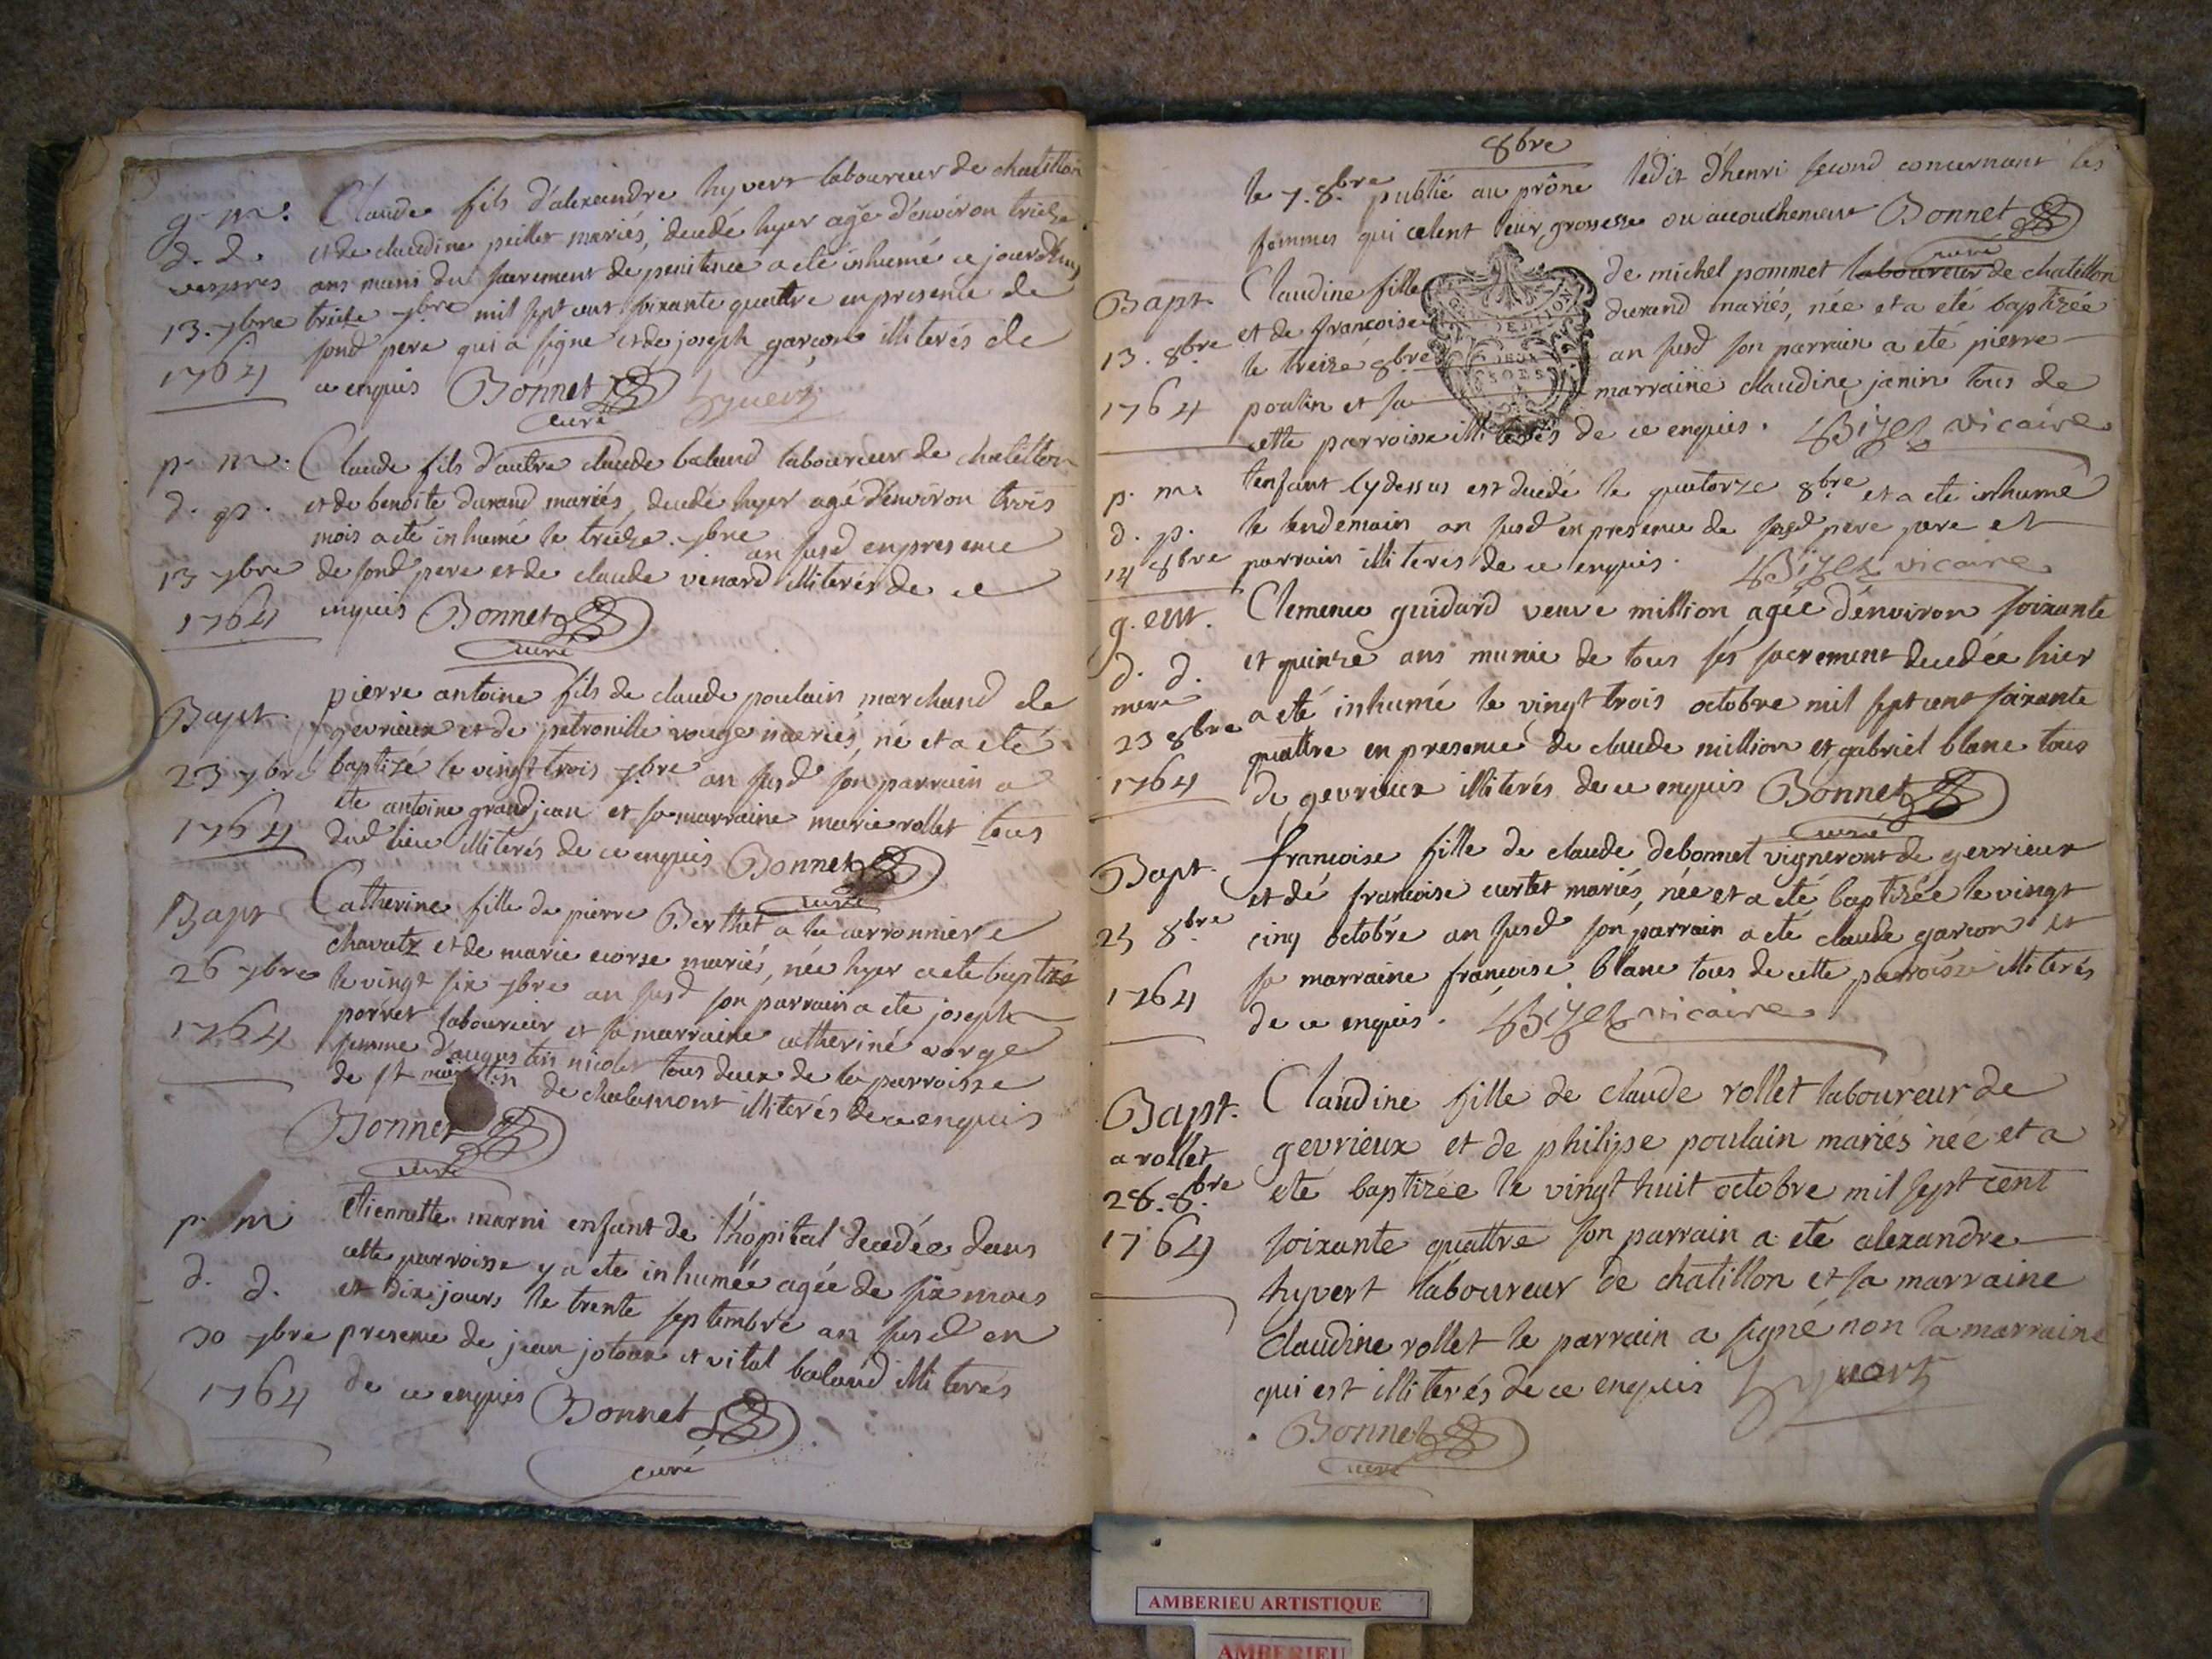 g. m.
d. d.
vespres
13. 7bre
1764
Claude fils d'alexandre hyvert laboureur de chatillon
et de claudine peillet mariés, decedé hyer agé d'environ treize
ans muni du sacrement de penitence a eté inhumé ce jourdhuy
treize 7bre mil sept cent soixante quattre en presence de
sond pere qui a signé et de joseph garçon illiterés de
ce enquis Bonnet hyvert
curé
p. m.
d. p.
13 7bre
1764
Claude fils d'autre claude baland laboureur de chatillon
et de benoite durand mariés, decedé hyer agé d'environ trois
mois a eté inhumé le treize 7bre an susd en presence
de sond pere et de claude venard illiterés de ce
enquis Bonnet
curé
Bapt.
23 7bre
1764
pierre antoine fils de claude poulain marchand de
gevrieux et de petronille rouge mariés, né et a eté
baptizé le vingt trois 7bre an susd son parrain a
ete antoine grandjean et sa marraine marie rollet tous
dud lieu illiterés de ce enquis Bonnet
curé
Bapt
26 7bre
1764
Catherine fille de pierre Berthet a la carronniere
chavatz et de marie ecorse mariés, née hyer a ete baptizée
le vingt six 7bre an susd son parrain a ete joseph
perret laboureur et sa marraine catherine vorge
femme d'augustin nicolet tous deux de la parroisse
de st martin de chalamont illiterés de ce enquis
Bonnet
curé
p. m
d. d.
30 7bre
1764
etiennette marni enfant de l'hopital decedée dans
cette parroisse y a ete inhumée agée de six mois
et dix jours le trente septembre an susd en
presence de jean joteur et vital baland illiterés
de ce enquis Bonnet
curé
8bre
le 7. 8bre publié au prône l'edit d'henri second concernant les
femmes qui celent leur grossesse ou accouchement Bonnet
curé
Bapt.
13. 8bre
1764
Claudine fille de michel pommet laboureur de chatillon
et de françoise durand mariés, née et a eté baptizée
le treize 8bre an susd son parrain a eté pierre
poulin et sa marraine claudine janin tous de
cette parroisse illiterés de ce enquis. Bizet vicaire
p. m.
d. p.
14 8bre
l'enfant cy dessus est decedé le quatorze 8bre et a eté inhumé
le lendemain an susd en presence de susd pere et
parrain illiterés de ce enquis. Bizet vicaire
g. em.
d. d.
mere
23 8bre
1764
Clemence guidard veuve million agée d'environ soixante
et quinze ans munie de tous ses sacrement decedée hier
a eté inhumé le vingt trois octobre mil sept cent soixante
quattre en presence de claude million et gabriel blanc tous
de gevrieux illiterés de ce enquis Bonnet
curé
Bapt.
25 8bre
1764
francoise fille de claude debonnet vigneront de gevrieux
et de francoise curtet mariés, née et a eté baptizée le vingt
cinq octobre an susd son parrain a eté claude garcon et
sa marraine françoise blanc tous de cette parroisse illiterés
de ce enquis. Bizet vicaire
Bapt.
a rollet
28. 8bre
1764
Claudine fille de claude rollet laboureur de
gevrieux et de philipe poulain mariés née et a
eté baptizée le vingt huit octobre mil sept cent
soixante quattre son parrain a eté alexandre
hyvert laboureur de chatillon et sa marraine
claudine rollet le parrain a signé non la marraine
qui est illiterés de ce enquis hyvert
Bonnet
curé
AMBERIEU ARTISTIQUE
AMBERIEU